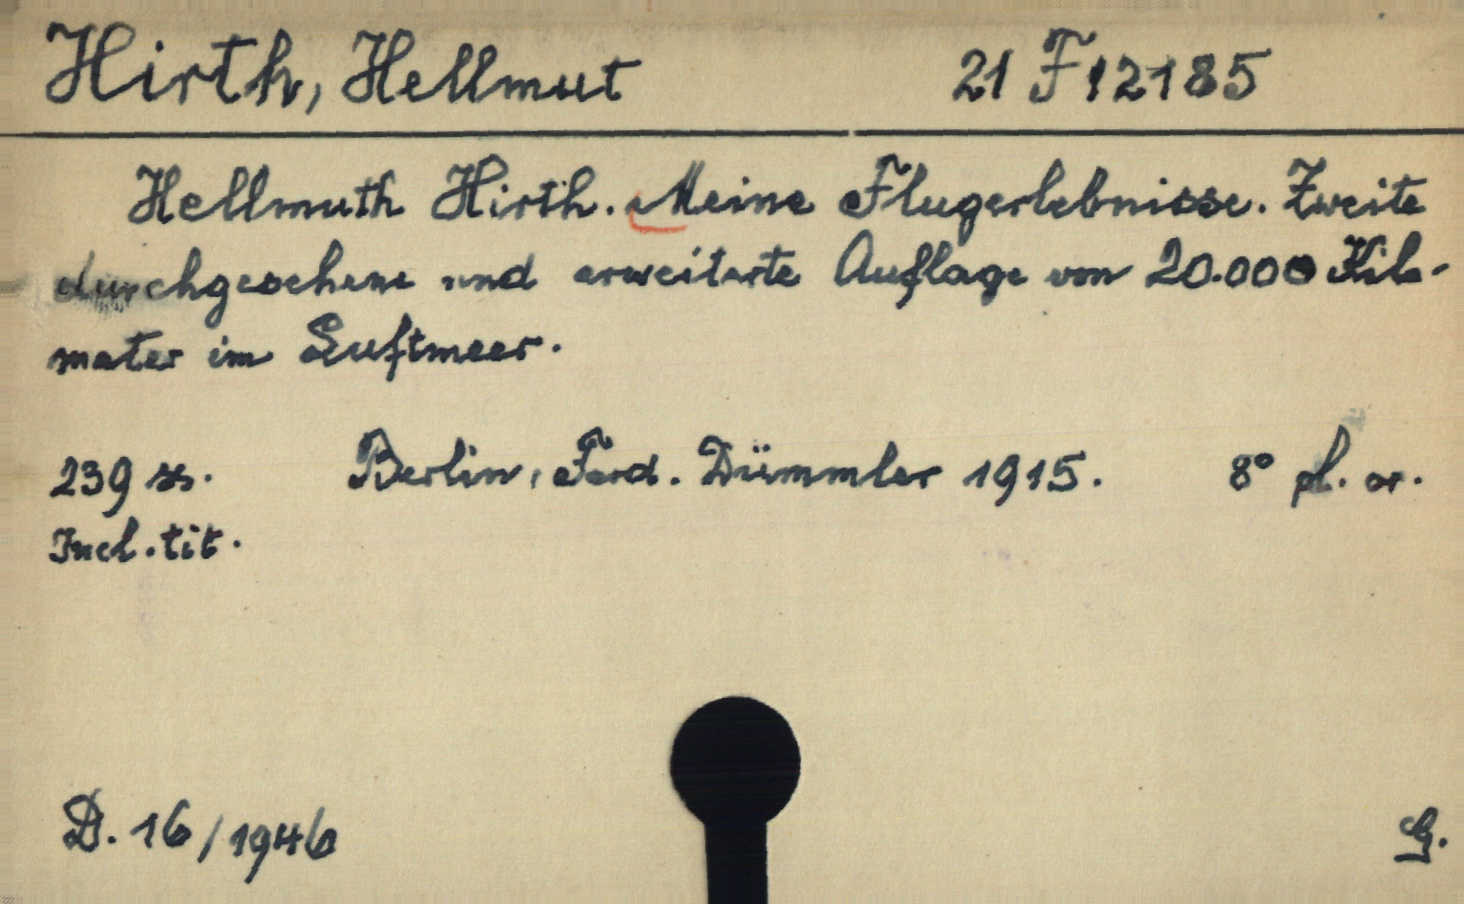 Hirth, Hellmut 21 F 12185
Hellmuth Hirth. Meine Flugerlebnisse. Zweite
durchgesehene und erweiterte Auflage von 20.000 Kilo-
meter im Luftmeer.
239 ss. Berlin, Ferd. Dümmler 1915. 8° pl. or.
Incl. tit.
D. 16/1946 G.